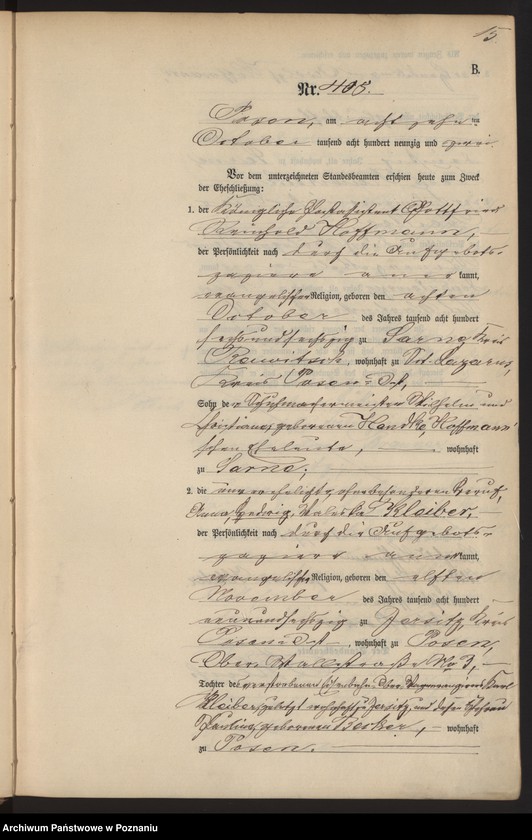 15
B.
Nr. 405.
Posen, am acht zehn ten
October tausend acht hundert neunzig und zwei
Vor dem unterzeichneten Standesbeamten erschien heute zum Zweck
der Eheschließung:
1. der Königliche Postassistent Gottfried
Reinhold Hoffmann,
der Persönlichkeit nach durch die Aufgebots-
papiere anerkannt,
evangelischer Religion, geboren den achten
October des Jahres tausend acht hundert
sechsundsechzig zu Sarne Kreis
Rawitsch, wohnhaft zu Sct. Lazarus,
Kreis Posen-Ost,
Sohn der Schuhmachermeister Wilhelm und
Christiana, geborenen Handke, Hoffmann'
schen Eheleute, wohnhaft
zu Sarne;
2. die unverehelichte, ohne besonderen Beruf,
Anna, Hedwig, Valeska Kleiber,
der Persönlichkeit nach durch die Aufgebots-
papiere anerkannt,
evangelischer Religion, geboren den elften
November des Jahres tausend acht hundert
neunundsechzig zu Jersitz Kreis
Posen Ost, wohnhaft zu Posen,
Ober Wallstraße Nr. 3,
Tochter des verstorbenen Eisenbahn-Ober- Karl
Kleiber, zuletzt wohnhaft zu Jersitz, und dessen Ehefrau
Pauline, geborenen Becker, wohnhaft
zu Posen.
Archiwum Państwowe w Poznaniu